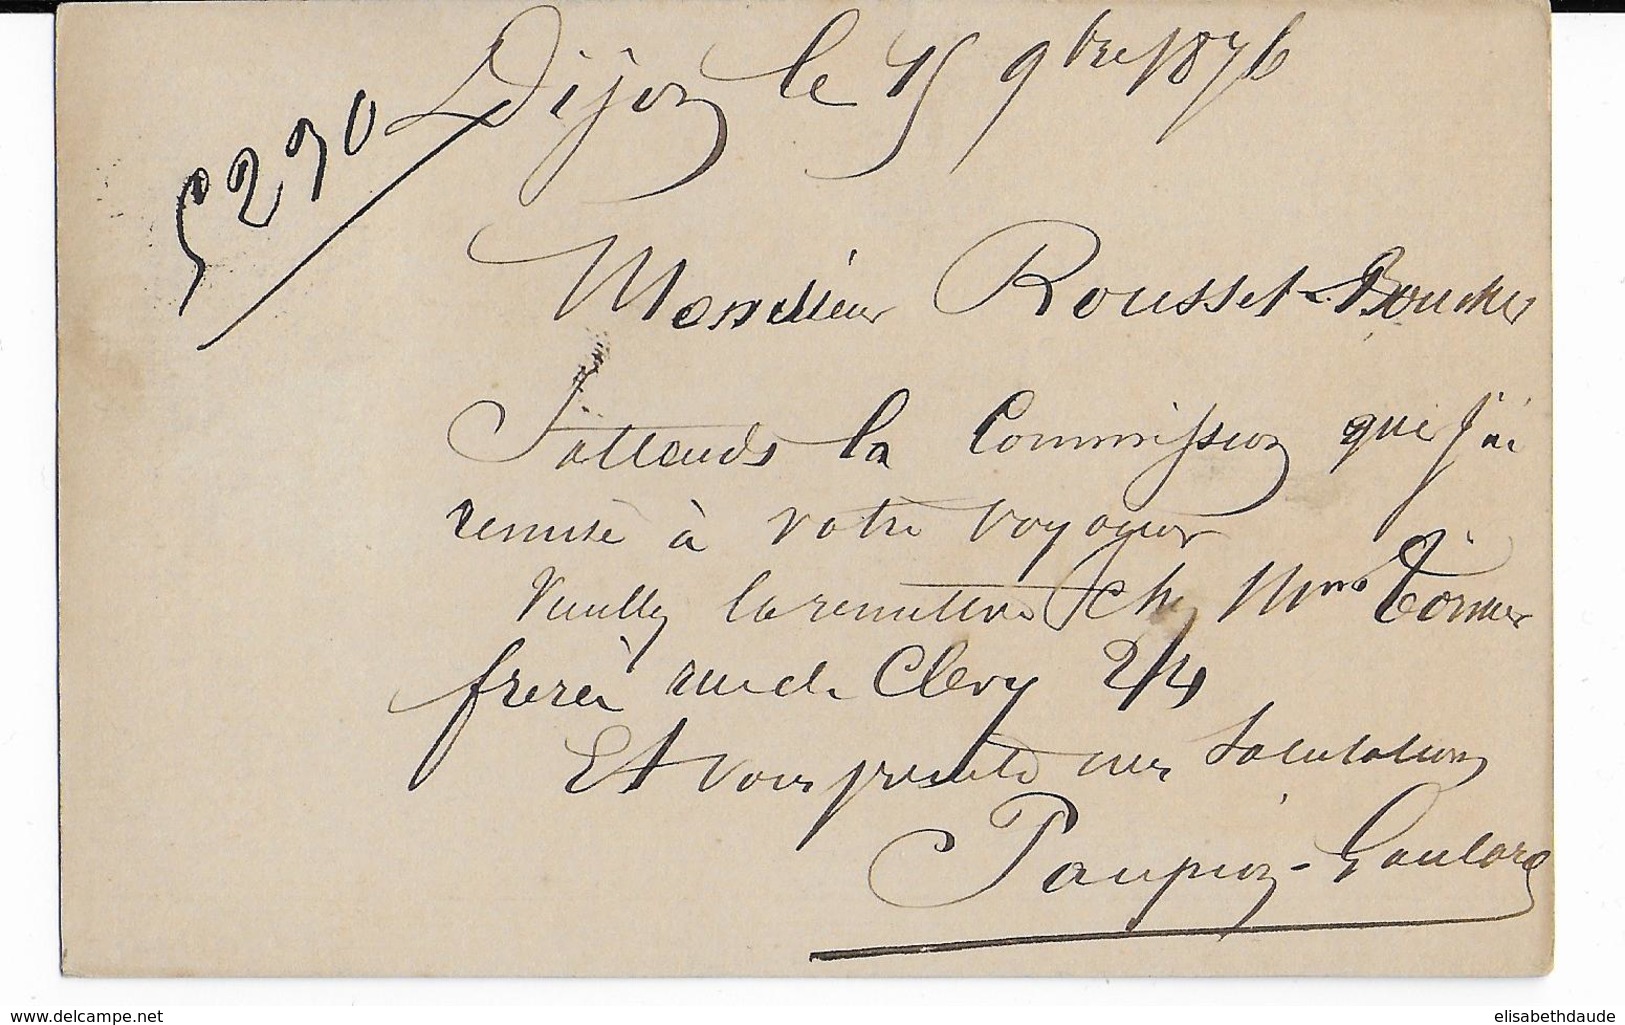 Dijon le 15 9bre 1876
5290
Monsieur Rousset-Boucher
J'attends la Commission que j'ai
remise à votre voyageur
Veuillez la remettre chez Mrs
frères rue de Cléry 24
Et vous présente mes salutations
Paupion-Goulard
delcampe.net
elisabethdaude